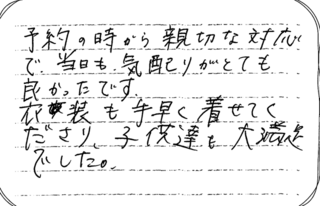 予約の時から親切な対応
で当日も気配りがとても
良かったです。
衣装も手早く着せてく
ださり、子供達も大満足
でした。